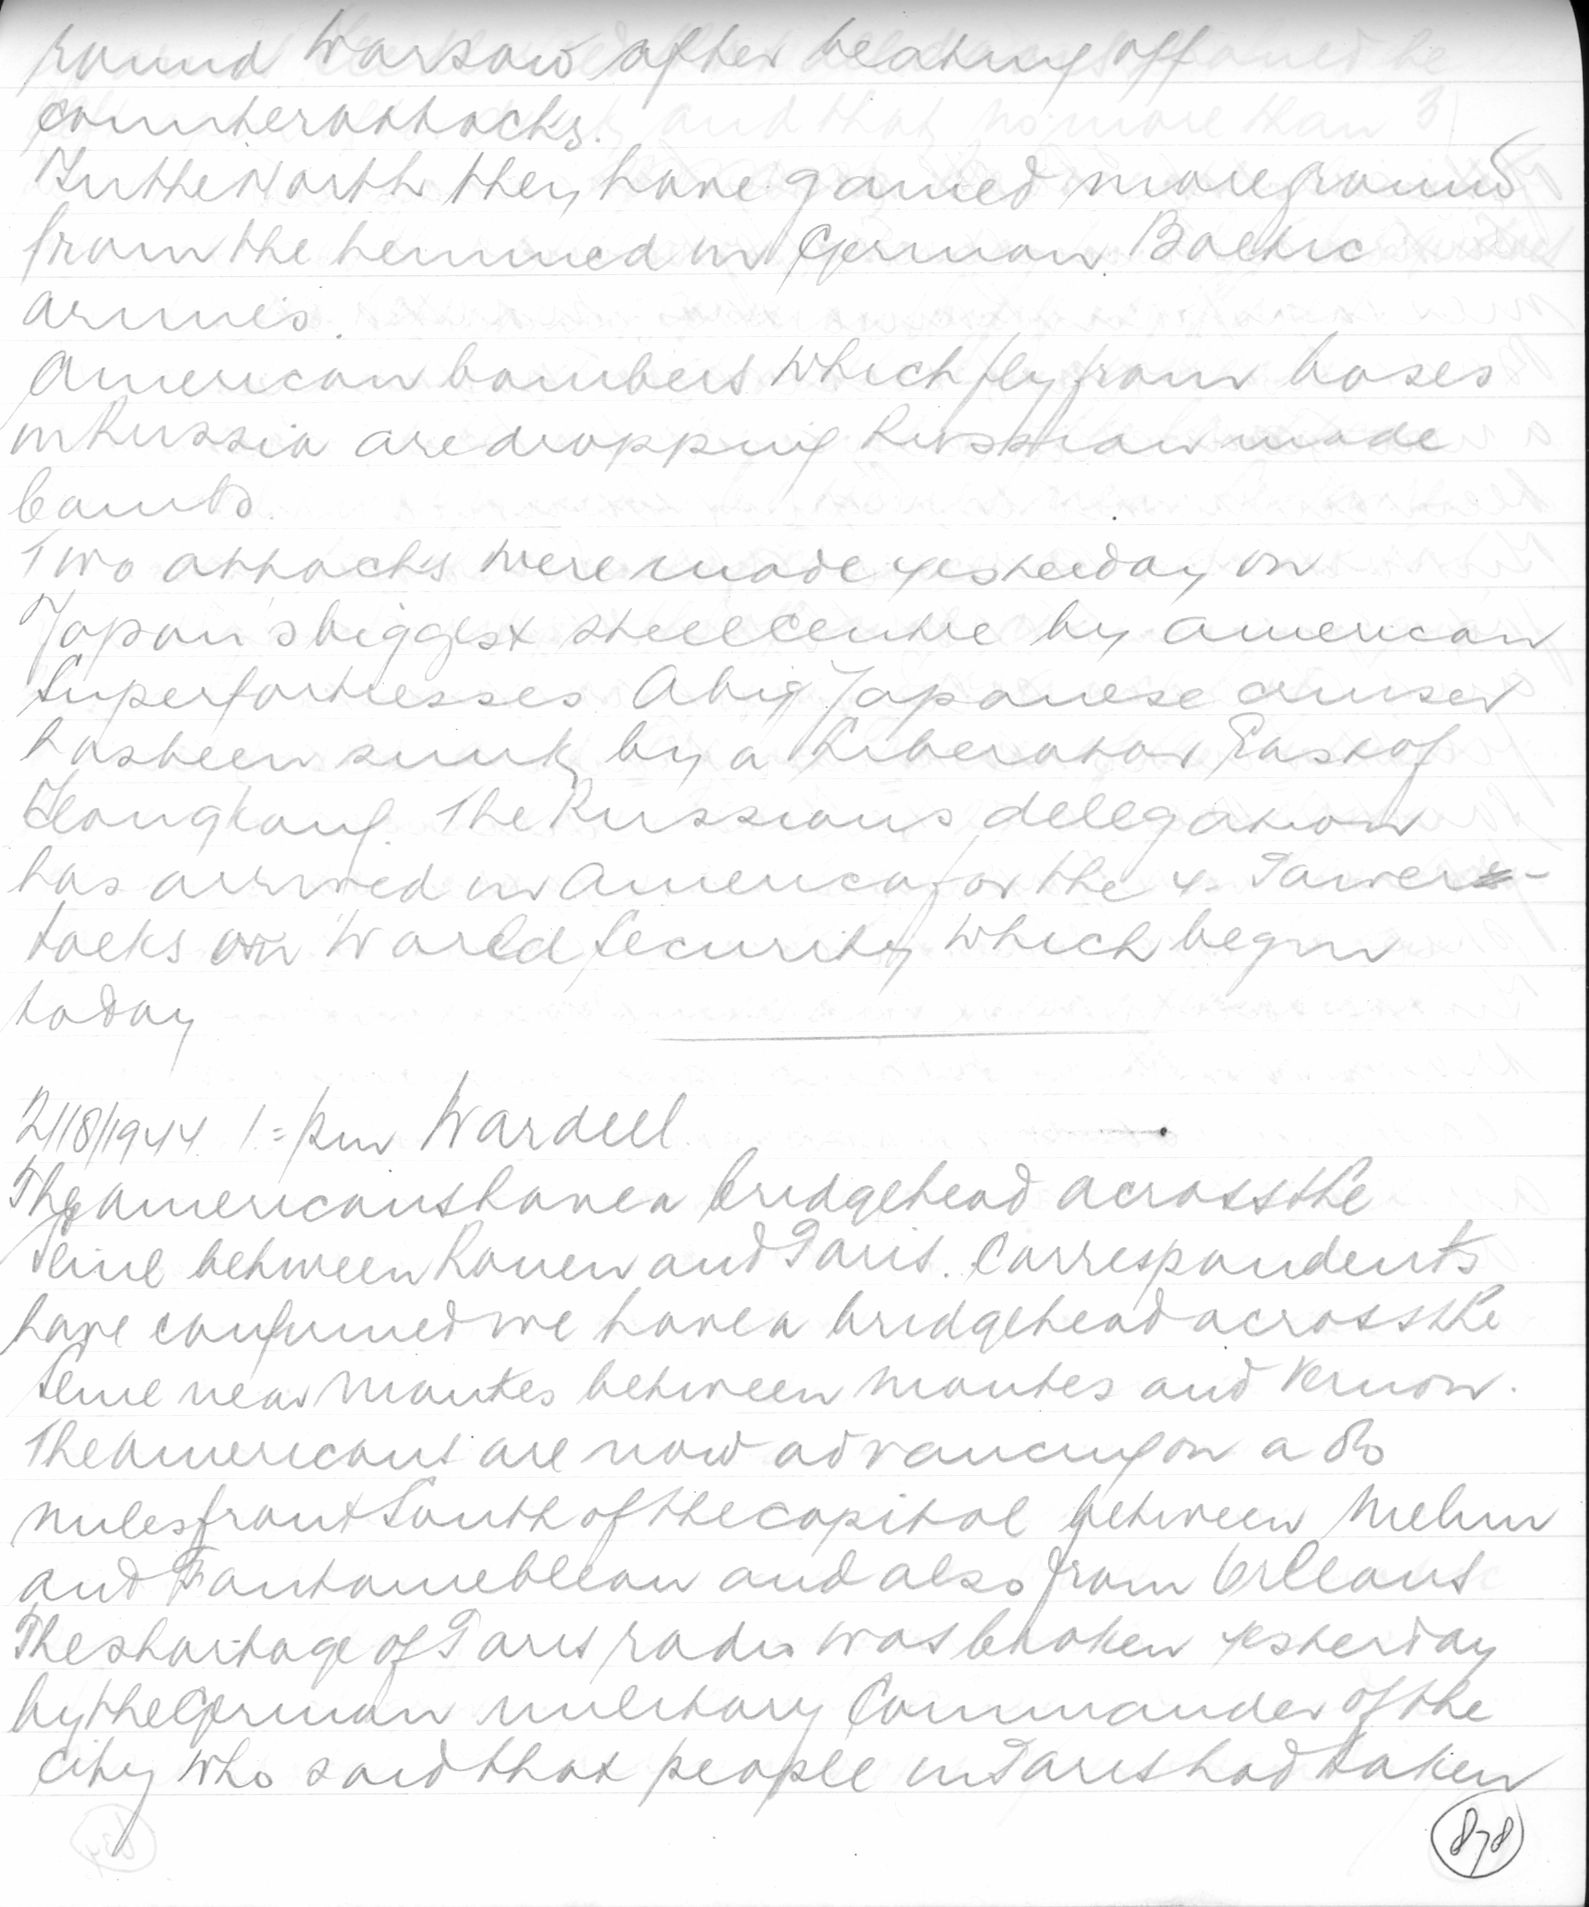 round Warsaw after beating off
counterattacks.
In the North they have gained more ground
from the hemmed in German Baltic
armies.
American bombers which fly from bases
in Russia are dropping Russian made
bombs.
Two attacks were made yesterday on
Japan's biggest steel centre by American
Superfortresses. A big Japanese cruiser
has been sunk by a Liberator East of
Hongkong. The Russians delegation
has arrived in America for the 4. Power-
talks on World Security which begin
today
21/8/1944 1 = pm Wardell
The Americans have a bridgehead across the
Seine between Rouen and Paris. Correspondents
have confirmed we have a bridgehead across the
Seine near Mantes between Mantes and Vernon.
The Americans are now advancing on a 80
miles front South of the capital between Melun
and Fontainebleau and also from Orleans
The shortage of Paris radio was broken yesterday
by the German military Commander of the
city who said that people in Paris had taken
878